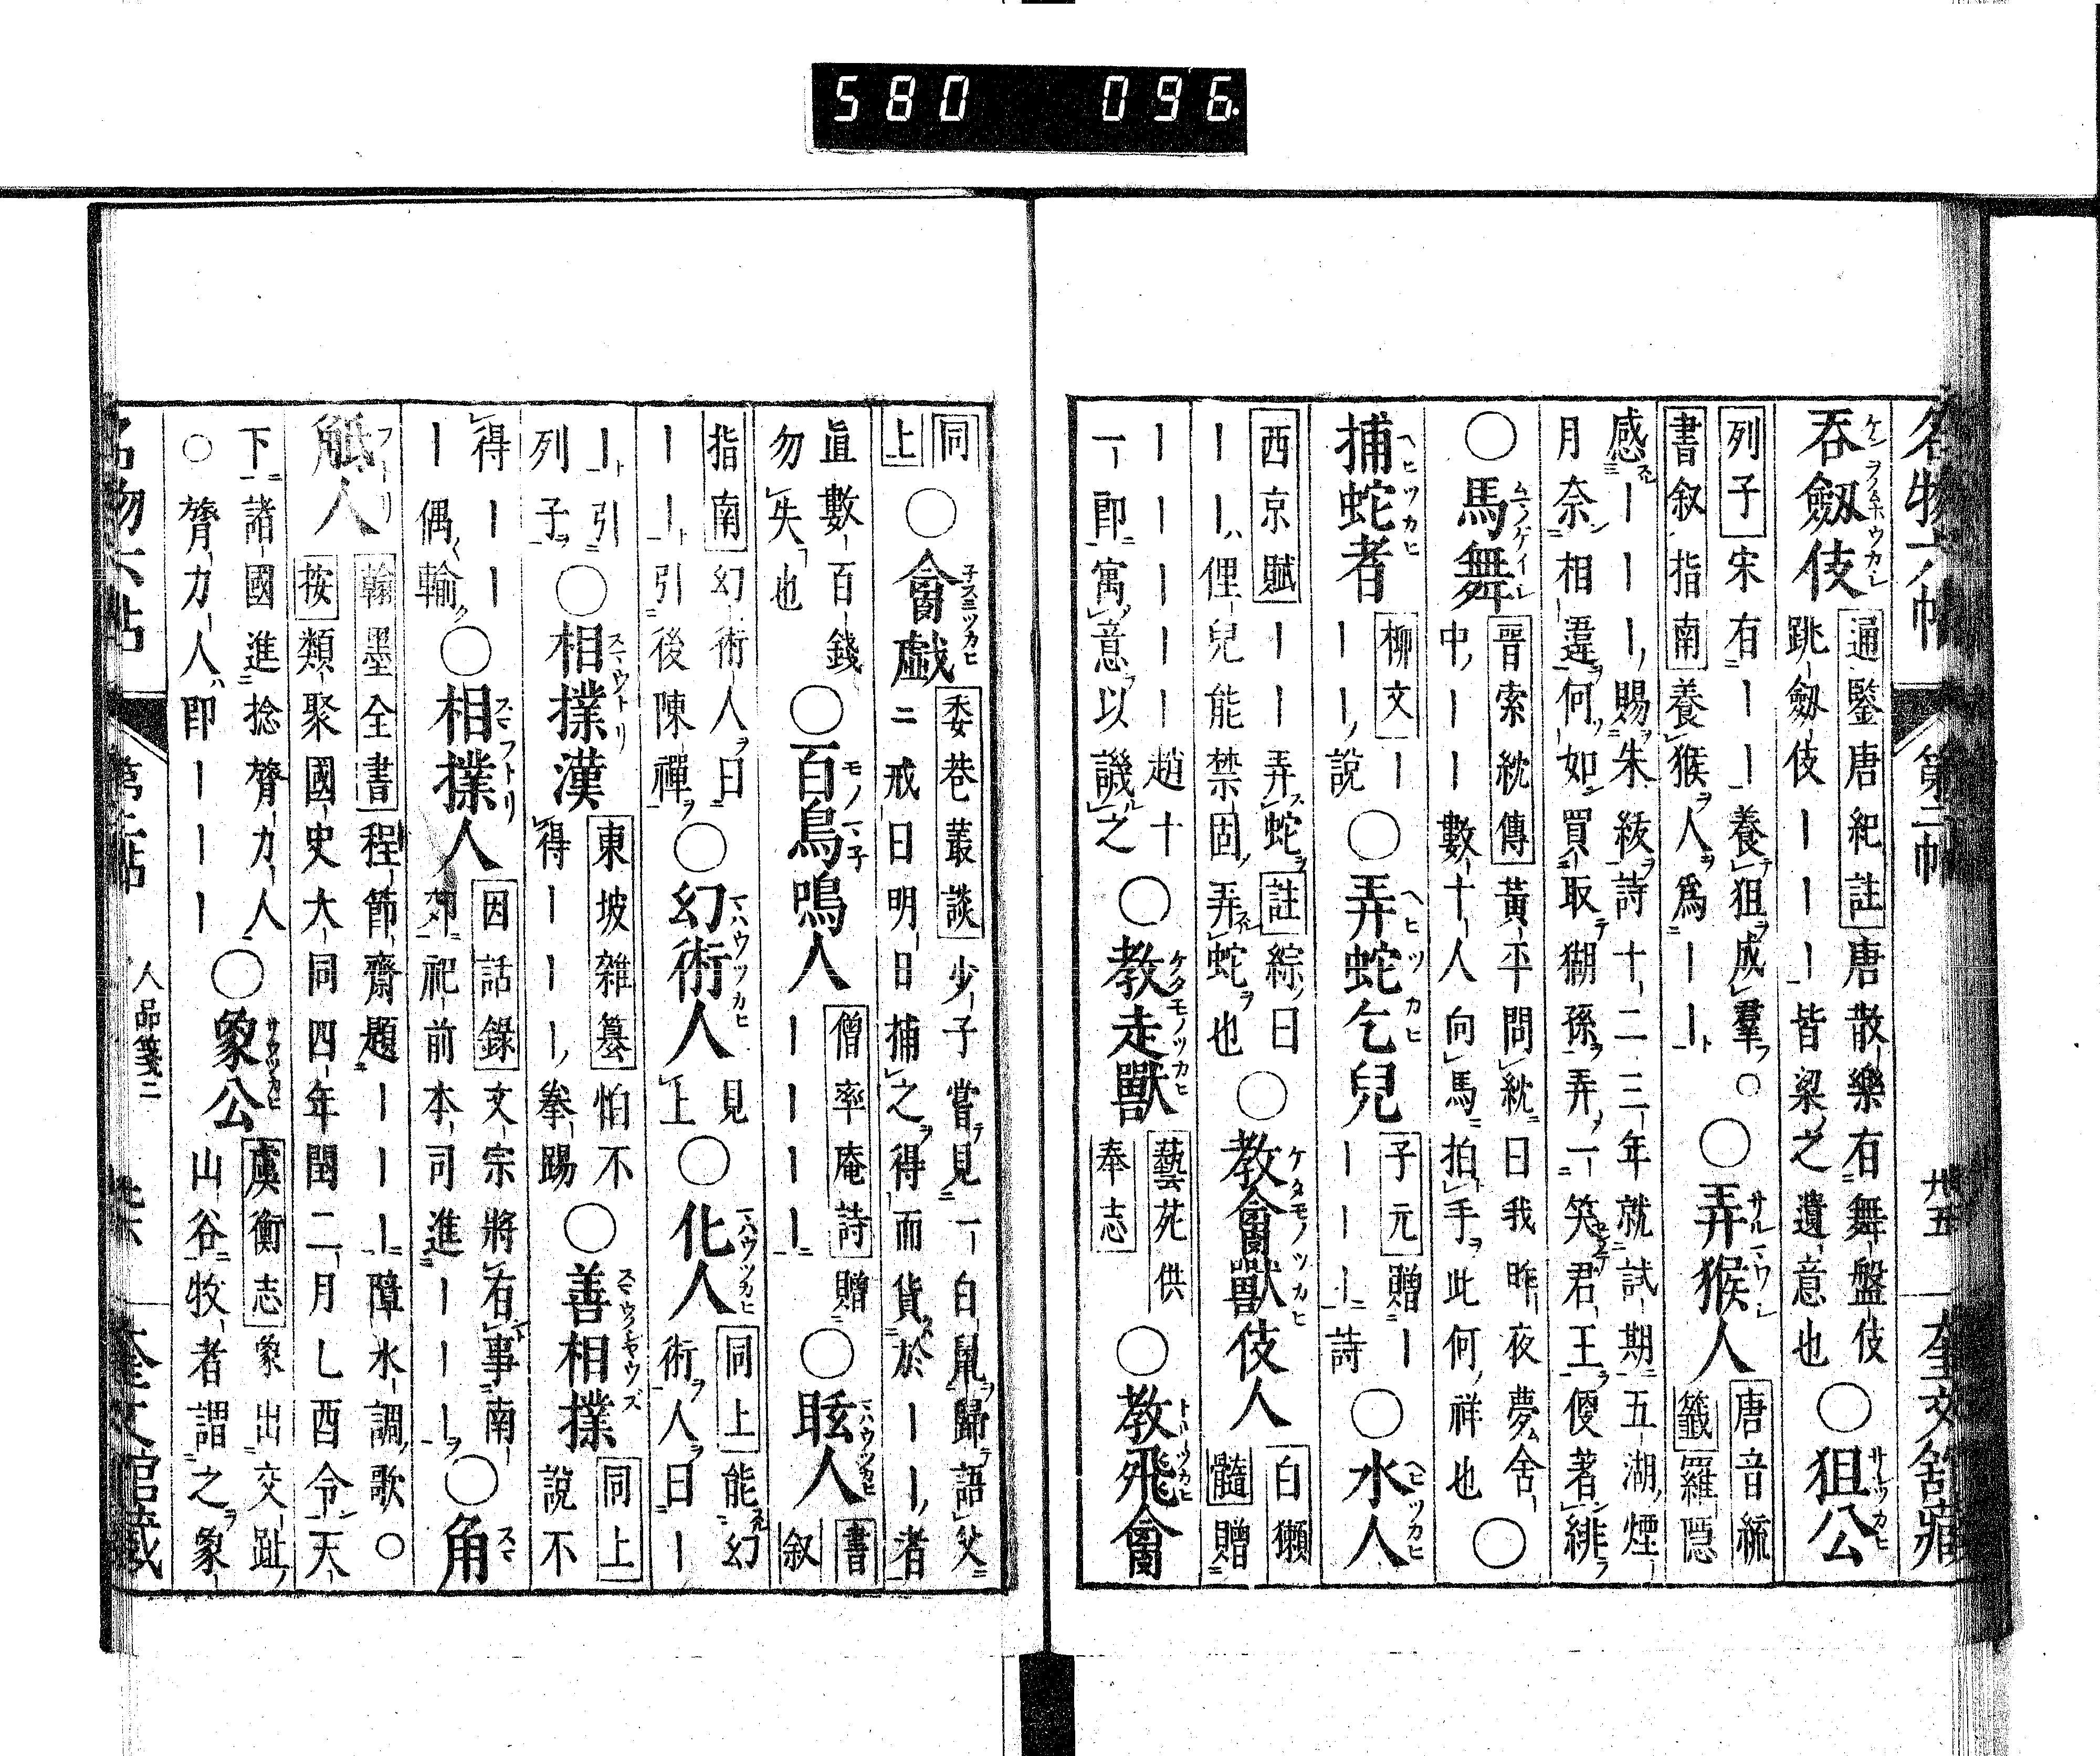 580 096.
名物六帖 第二帖 廿五 奎文舘藏
吞劔伎 通鑒唐紀註 唐散樂右舞盤伎
跳劔伎ーーー皆梁之遺意也 ○狙公
列子 宋有ーー養狙成羣○ ○弄猴人 唐音統
書叙指南 養猴人爲ーー 籤 羅隱
感ーーー賜朱紱詩十二三年就試期五湖煙
月奈相違何如買取猢孫弄一笑君王便著緋
○馬舞 晉索紞傳 黃平問紞曰我昨夜夢舍
中ーー數十人向馬拍手此何祥也 ○
捕蛇者 柳文 ーーー說 ○弄蛇乞兒 子元 贈ーーーー詩 ○水人
西京賦 ーー弄蛇 註 綜曰
ーー俚兒能禁固弄蛇也 ○教禽獸伎人 白獺
髓 贈
ーーーーー趙十
一卽寓意以譏之 ○教走獸 藝苑供
奉志 ○教飛禽
同上 ○禽戯 委巷叢談 少子嘗見一白鼠歸語父
ニ戒曰明日捕之得而貨於ーー者
眞數百錢
勿失也 ○百鳥鳴人 僧率庵詩 贈ーーーー ○眩人 書叙
指南 幻術人曰
ーー引後陳禪 ○幻術人 見上 ○化人 同上 能幻
術人曰ー
ー引
列子 ○相撲漢 東坡雜纂 怕不
得ーーー拳踢 ○善相撲 同上
說不
得ーー
ー偶輸 ○相撲人 因話錄 文宗將有事南
郊祀前本司進ーーー ○角
觝人 翰墨全書 程節齋題ーーー障水調歌○
按 類聚國史大同四年閏二月乚酉令天
下諸國進捻膂力人
○膂力人卽ーーー ○象公 虞衡志 象出交趾
山谷牧者謂之象
名物六帖 第二帖 人品箋二 奎文舘藏